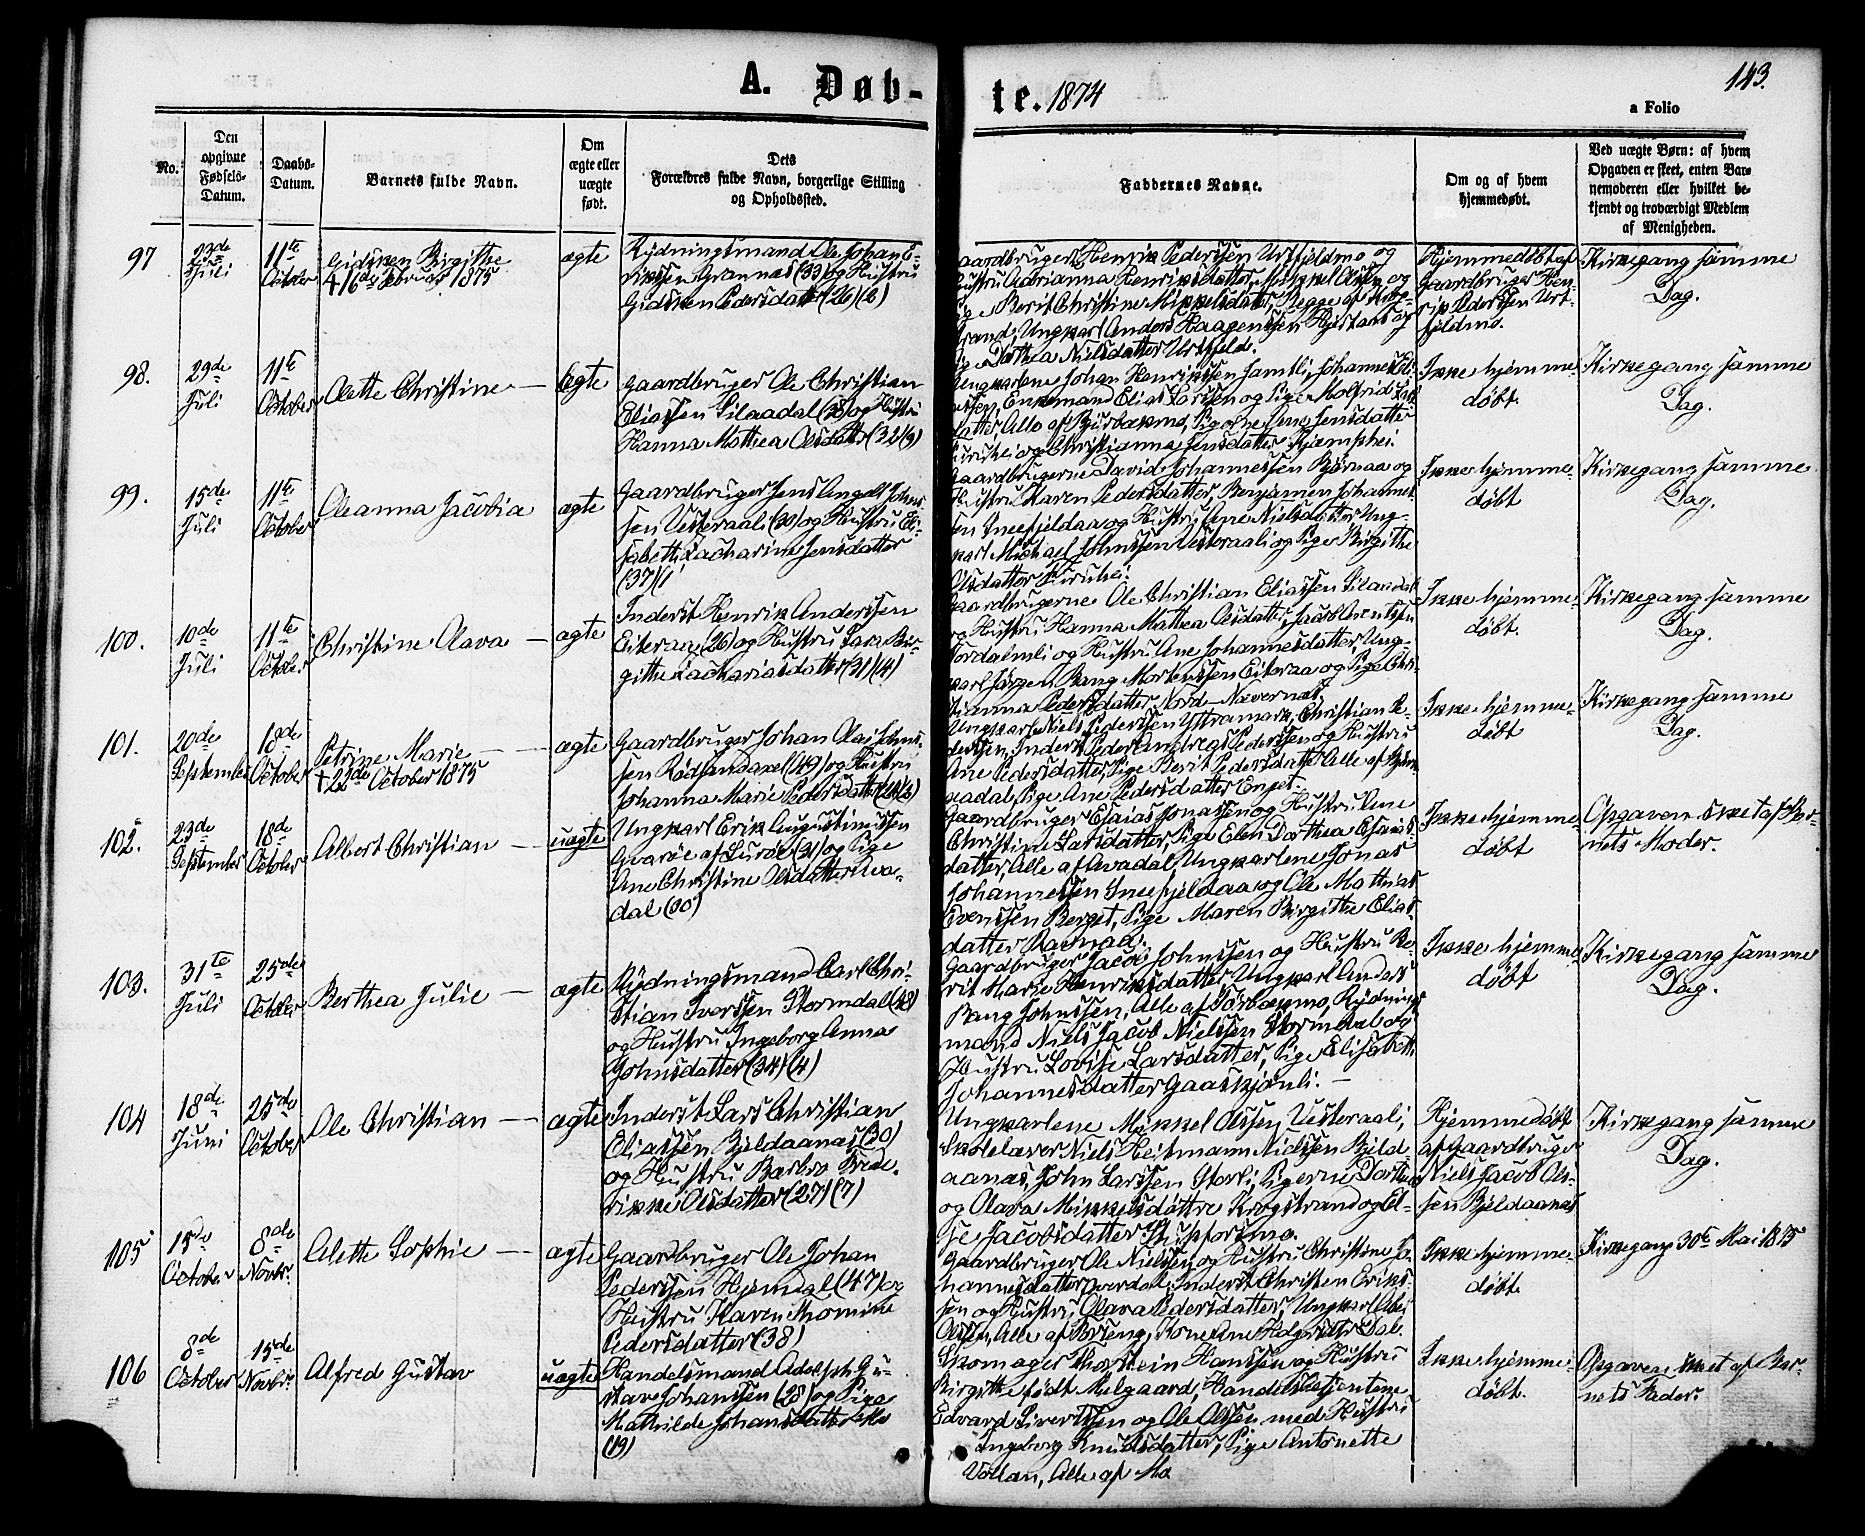 A. Døb-
te. 1874
143.
a Folio
No.
Den
opgivne
Fødsels-
Datum.
Daabs-
Datum.
Barnets fulde Navn.
Om
ægte eller
uægte
født.
Dets
Forældres fulde Navn, borgerlige Stilling
og Opholdssted.
Faddernes Navne.
Om og af hvem
hjemmedøbt.
Ved uægte Børn: af hvem
Opgaven er skeet, enten Bar-
nemoderen eller hvilket be-
kjendt og troværdigt Medlem
af Menigheden.
97
23de
Juli
11te
October
Gidsken Birgithe
† 16de Februar 1875
ægte
Rydningsmand Ole Johan E-
riksen Grannæs (33) og Hustru
Gidsken Pedersdatter (26) (6)
Gaardbruger Henrik Pederssen Urtfjeldmo og
Hustru Adrianna Henriksdatter, Mikkel Olsen og
Pige Berit Christine Mikkelsdatter, Begge af Krog-
strand, Ungkarl Anders Haagenssen Hjerstaas og
Pige Dorthea Nielsdatter Urtfjeld.
Hjemmedøbt af
Gaardbruger Hen-
rik Pederssen Urt-
fjeldmo.
Kirkegang samme
Dag.
98.
29de
Juli
11te
October
Olette Christine
ægte
Gaardbruger Ole Christian
Eliassen Silaadal (28) og Hustru
Hanna Mathea Olsdatter (32) (9)
Ungkarlene Johan Henrikssen Jamtli, Johannes Eli-
assen, Enkemand Elias Larssen og Pige Molfrid Lars-
datter Alle af Bjurbækmo, Pigerne Ane Jensdatter
og Christianna Jensdatter Kjæmphei.
Ikke hjemme-
døbt.
Kirkegang samme
Dag.
99.
15de
Juli
11te
October
Oleanna Jacobia
ægte
Gaardbruger Jens Angell Johns-
sen Vesteraali (30) og Hustru Eli-
sabeth Zacharine Jensdatter
(37) (1
Gaardbrugerne David Johannessen Bjørnaa og
Hustru Karen Pedersdatter, Benjamin Johannes-
sen Sneefjeldaa og Hustru Ane Nielsdatter, Ung-
karl Michael Johnssen Vesteraali og Pige Birgithe
Olsdatter
Ikke hjemme-
døbt
Kirkegang samme
Dag.
100.
10de
Juli
11te
October
Christine Olava
ægte
Inderst Henrik Anderssen
Eiteraa (26) og Hustru Sara Bir-
githe Zachariasdatter (31) (4)
Gaardbrugerne Ole Christian Eliassen Silaadal
og Hustru Hanna Mathea Olsdatter, Jacob Arentssen
Tordalmli og Hustru Ane Johannesdatter, Ung-
karl Jørgen Bang Mortenssen Eiteraa og Pige Chri-
stianna Pedersdatter Nord-Nævernæs.
Ikke hjemme-
døbt.
Kirkegang samme
Dag.
101.
20de
September
18de
October
Petrine Marie
† 22de October 1875
ægte
Gaardbruger Johan Olai Johns-
sen Rødsandaxel (49) og Hustru
Johanna Marie Pedersdatter
Ungkarl Niels Pederssen Yttramark, Christian Pe-
derssen, Inderst Peder Andreas Pederssen og Hustru
Ane Pedersdatter, Pige Berit Pedersdatter Alle af
Pige Ane Pedersdatter Enget.
Ikke hjemme-
døbt
Kirkegang samme
Dag.
102.
23de
September
18de
October
Albert Christian
uægte
Ungkarl Erik Augustinussen
Kvarøe af Lurøe (31) og Pige
Ane Christine Olsdatter Ava-
dal (30)
Gaardbruger Esaias Jonassen og Hustru Ane
Christine Larsdatter, Pige Elen Dorthea Esaias-
datter, Alle af Avadal, Ungkarlene Jonas
Johannessen Sneefjeldaa og Ole Mathias
Evenssen Berget, Pige Maren Birgithe Elias-
datter
Ikke hjemme-
døbt
Opgaven skeet af Bar-
nets Moder.
103.
31te
Juli
25de
October
Berthea Julie
ægte
Rydningsmand Carl Chri-
stian Iverssen Stormdal (48)
og Hustru Ingeborg Anna
Johnsdatter (34) (4)
Gaardbruger Jacob Johnssen og Hustru Be-
rit Marie Henriksdatter, Ungkarl Anders
Bang Johnssen, Alle af Tørbækmo, Rydnings-
mand Niels Jacob Nielssen Stormdal og
Hustru Lovise Larsdatter, Pige Elisabeth
Johannesdatter Gaaskjønli.
Ikke hjemme-
døbt
Kirkegang samme
Dag.
104
18de
Juni
25de
October
Ole Christian
ægte
Inderst Lars Christian
Eliassen Bjeldaanæs (30)
og Hustru Barbro Frede-
rikke Olsdatter (27) (7)
Ungkarlene Mikkel Olssen, Vesteraali,
Skolelærer Niels Heitmann Nielssen Bjeld-
aanæs, John Larssen Storli, Pigerne Dorthea
og Olava Mikkelsdøttre Krogstrand og El-
se Jacobsdatter Skupforsmo.
Hjemmedøbt
af Gaardbruger
Niels Jacob Ols-
sen Bjeldaanæs
Kirkegang samme
Dag.
105
15de
October
8de
Novbr.
Olette Sophie
ægte
Gaardbruger Ole Johan
Pederssen Hjemdal (47) og
Hustru Karen Thomine
Pedersdatter (38)
Gaardbruger Ole Nielssen og Hustru Christine Jo-
hannesdatter, Inderst Christen Eriks-
sen og Hustru Olava Pedersdatter, Ungkarl
Olssen, Alle af Kone Ane Dal.
Ikke hjemme-
døbt
Kirkegang 30te Mai 1875
106
8de
October
15de
Novbr.
Alfred Gustav
uægte
Handelsmand Adolph Gu-
stav Johanssen (28) og Pige
Mathilde Johansdatter Mo
(19)
Skomager Thorstein Hanssen og Hustru
Birgitte født Mælgaard, Handelsbetjentene
Edvard Sivertssen og Ole Olssen med Hustru
Ingeborg Knudsdatter, Pige Antonette
Vollan, Alle af Mo
Ikke hjemme-
døbt.
Opgaven skeet af Bar-
nets Fader.